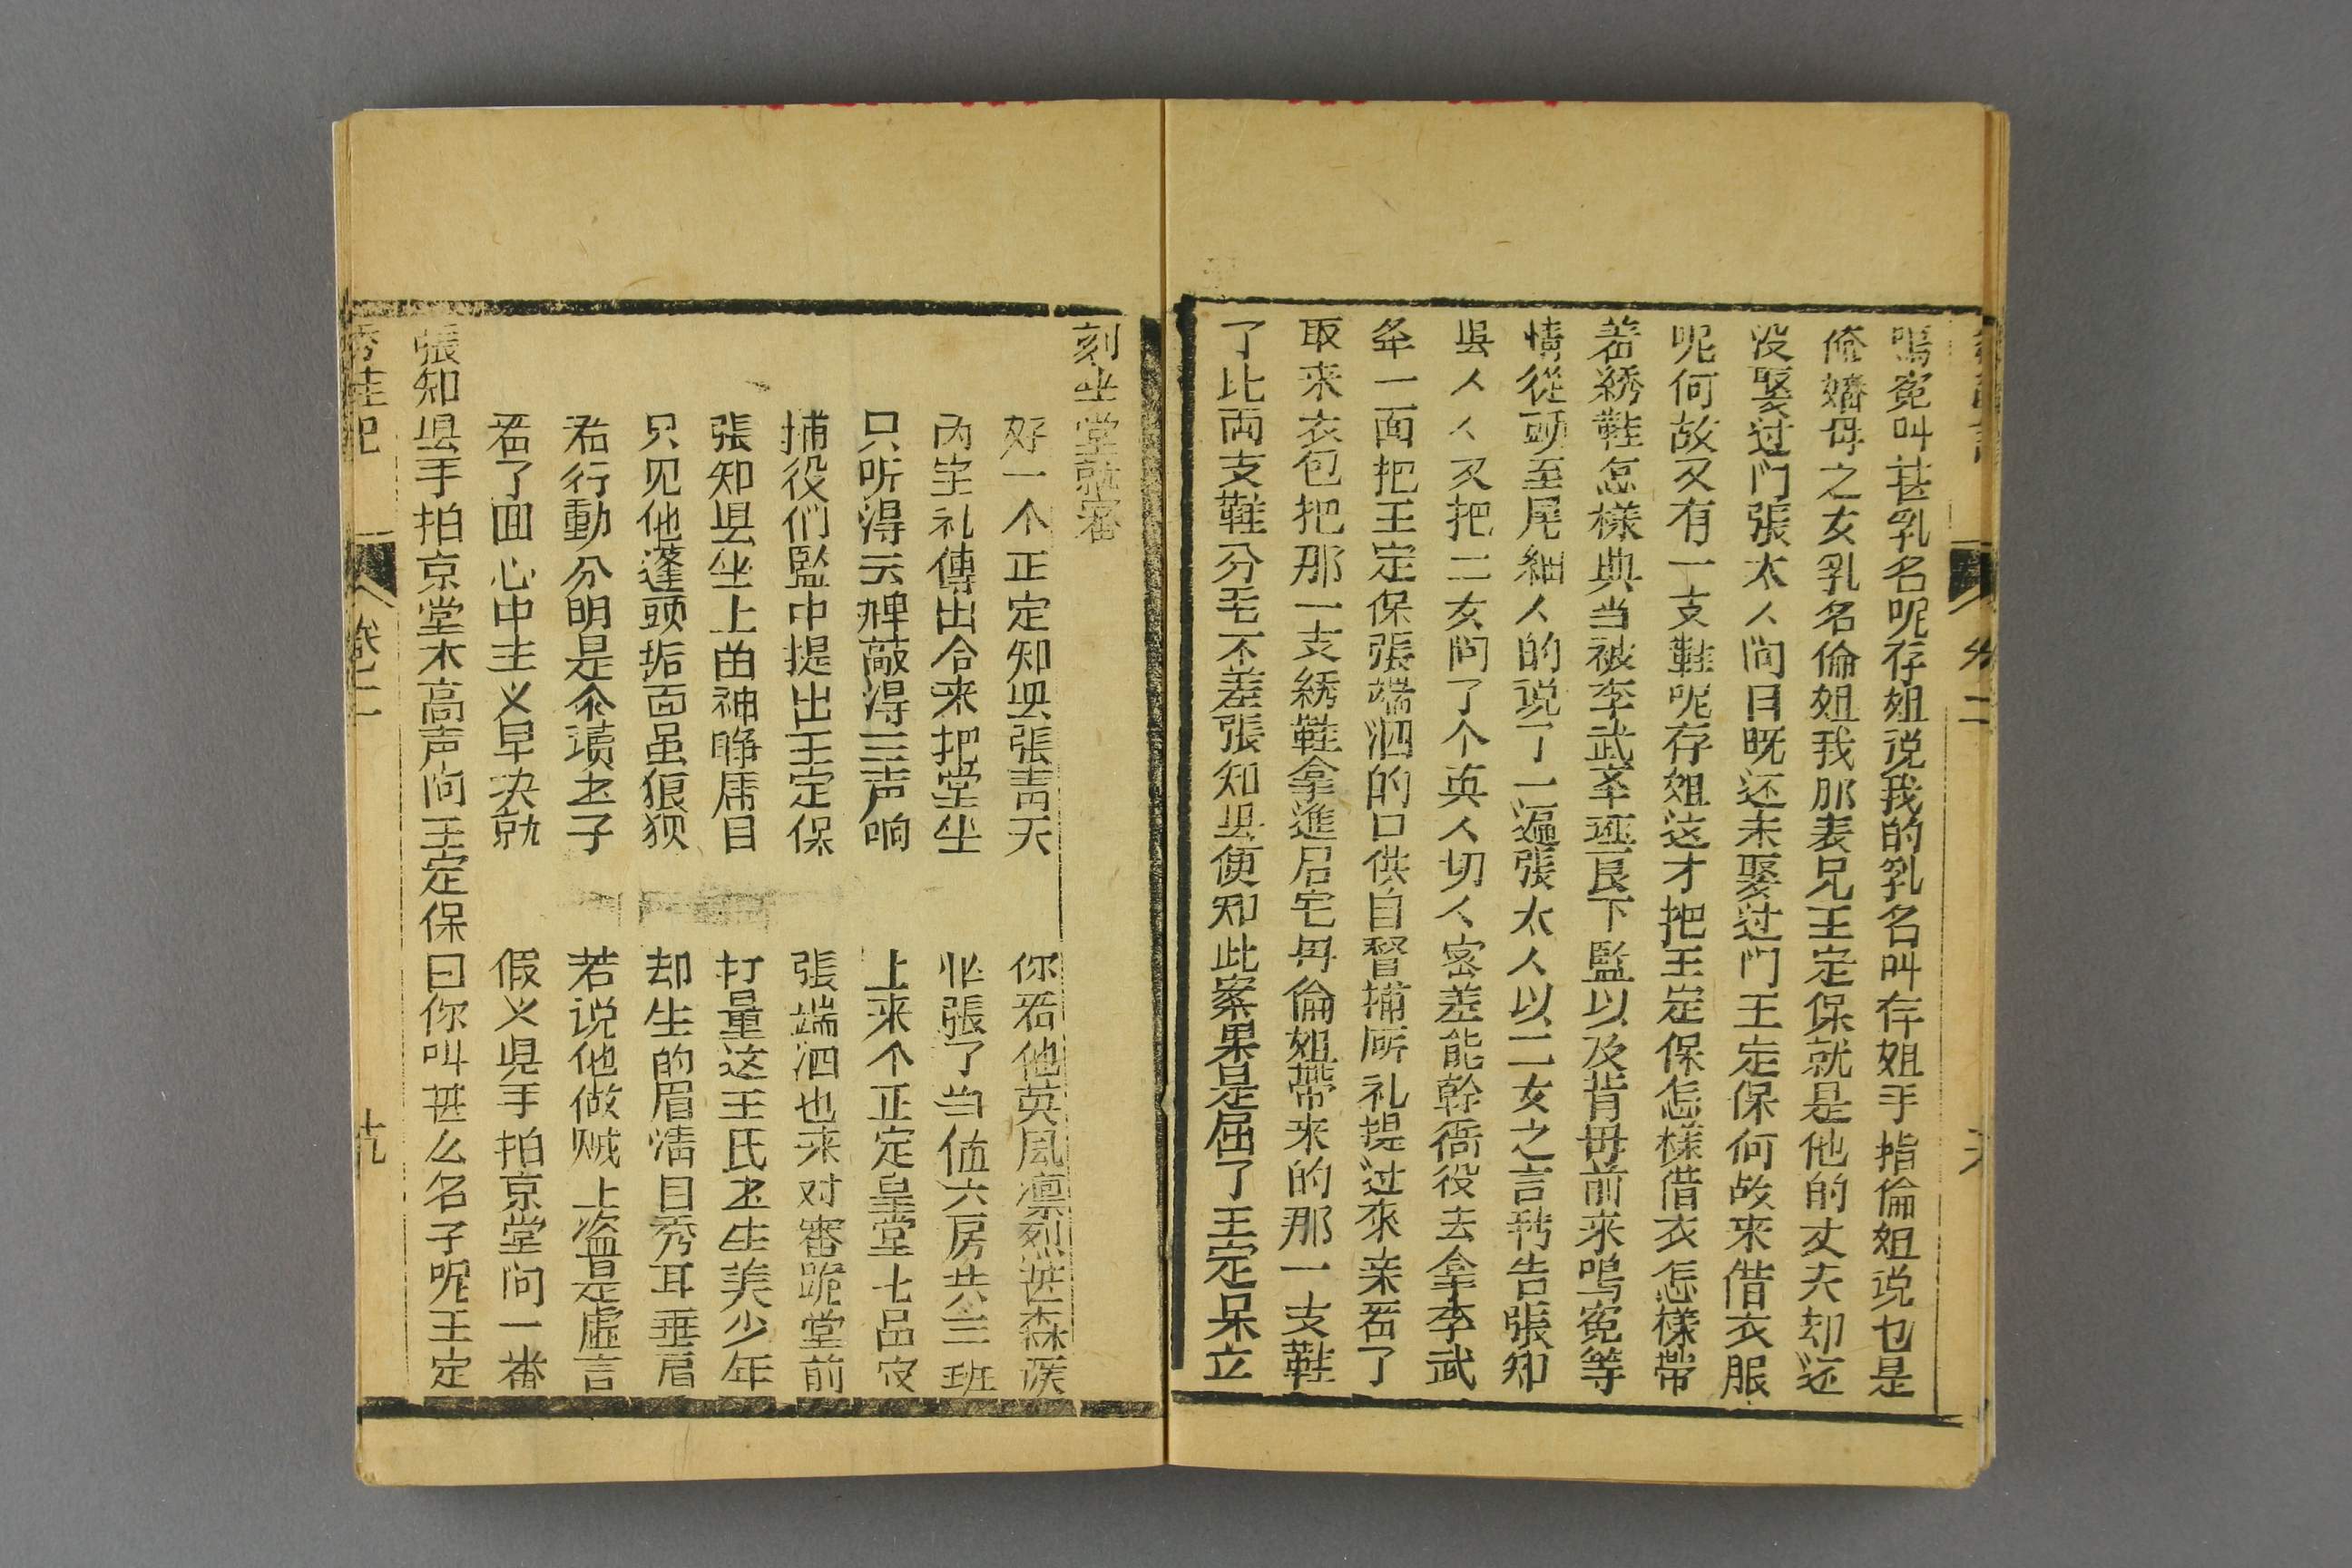 嗚冤叫甚乳名呢存姐说我的乳名叫存姐手指倫姐说也是
俺嬸母之女乳名倫姐我那表兄王定保就是他的丈夫却还
没娶过门張太人问曰既还未娶过门王定保何故来借衣服
呢何故又有一支鞋呢存姐这才把王定保怎樣借衣怎樣帶
着綉鞋怎樣典当被李武举誣良下監以及背母前来嗚冤等
情從頭至尾細人的说了一遍張太人以二女之言转告張知
县人人又把二女问了个真人切人密差能幹衙役去拿李武
举一面把王定保張端泗的口供自督捕所礼提过來亲看了
取来衣包把那一支綉鞋拿進后宅毋倫姐帶来的那一支鞋
了此両支鞋分毛不差張知县便知此案果是屈了王定保立
刻坐堂就審
好一个正定知县張青天 你看他英風凛烈甚森嚴
内宅礼傳出合来把堂坐 張了当值六房共三班
只听得云牌敲得三声响 上来个正定皇堂七品官
捕役们監中提出王定保 張端泗也来对審跪堂前
張知县坐上留神睁虎目 打量这王氏书生美少年
只见他蓬頭垢面虽狼狈 却生的眉清目秀耳垂肩
看行動分明是念讀书子 若说他做贼上盗是虛言
看了囬心中主义早决就 假义县手拍京堂问一番
張知县手拍京堂木高声问王定保曰你叫甚么名子呢王定
秀鞋记 卷二 十九